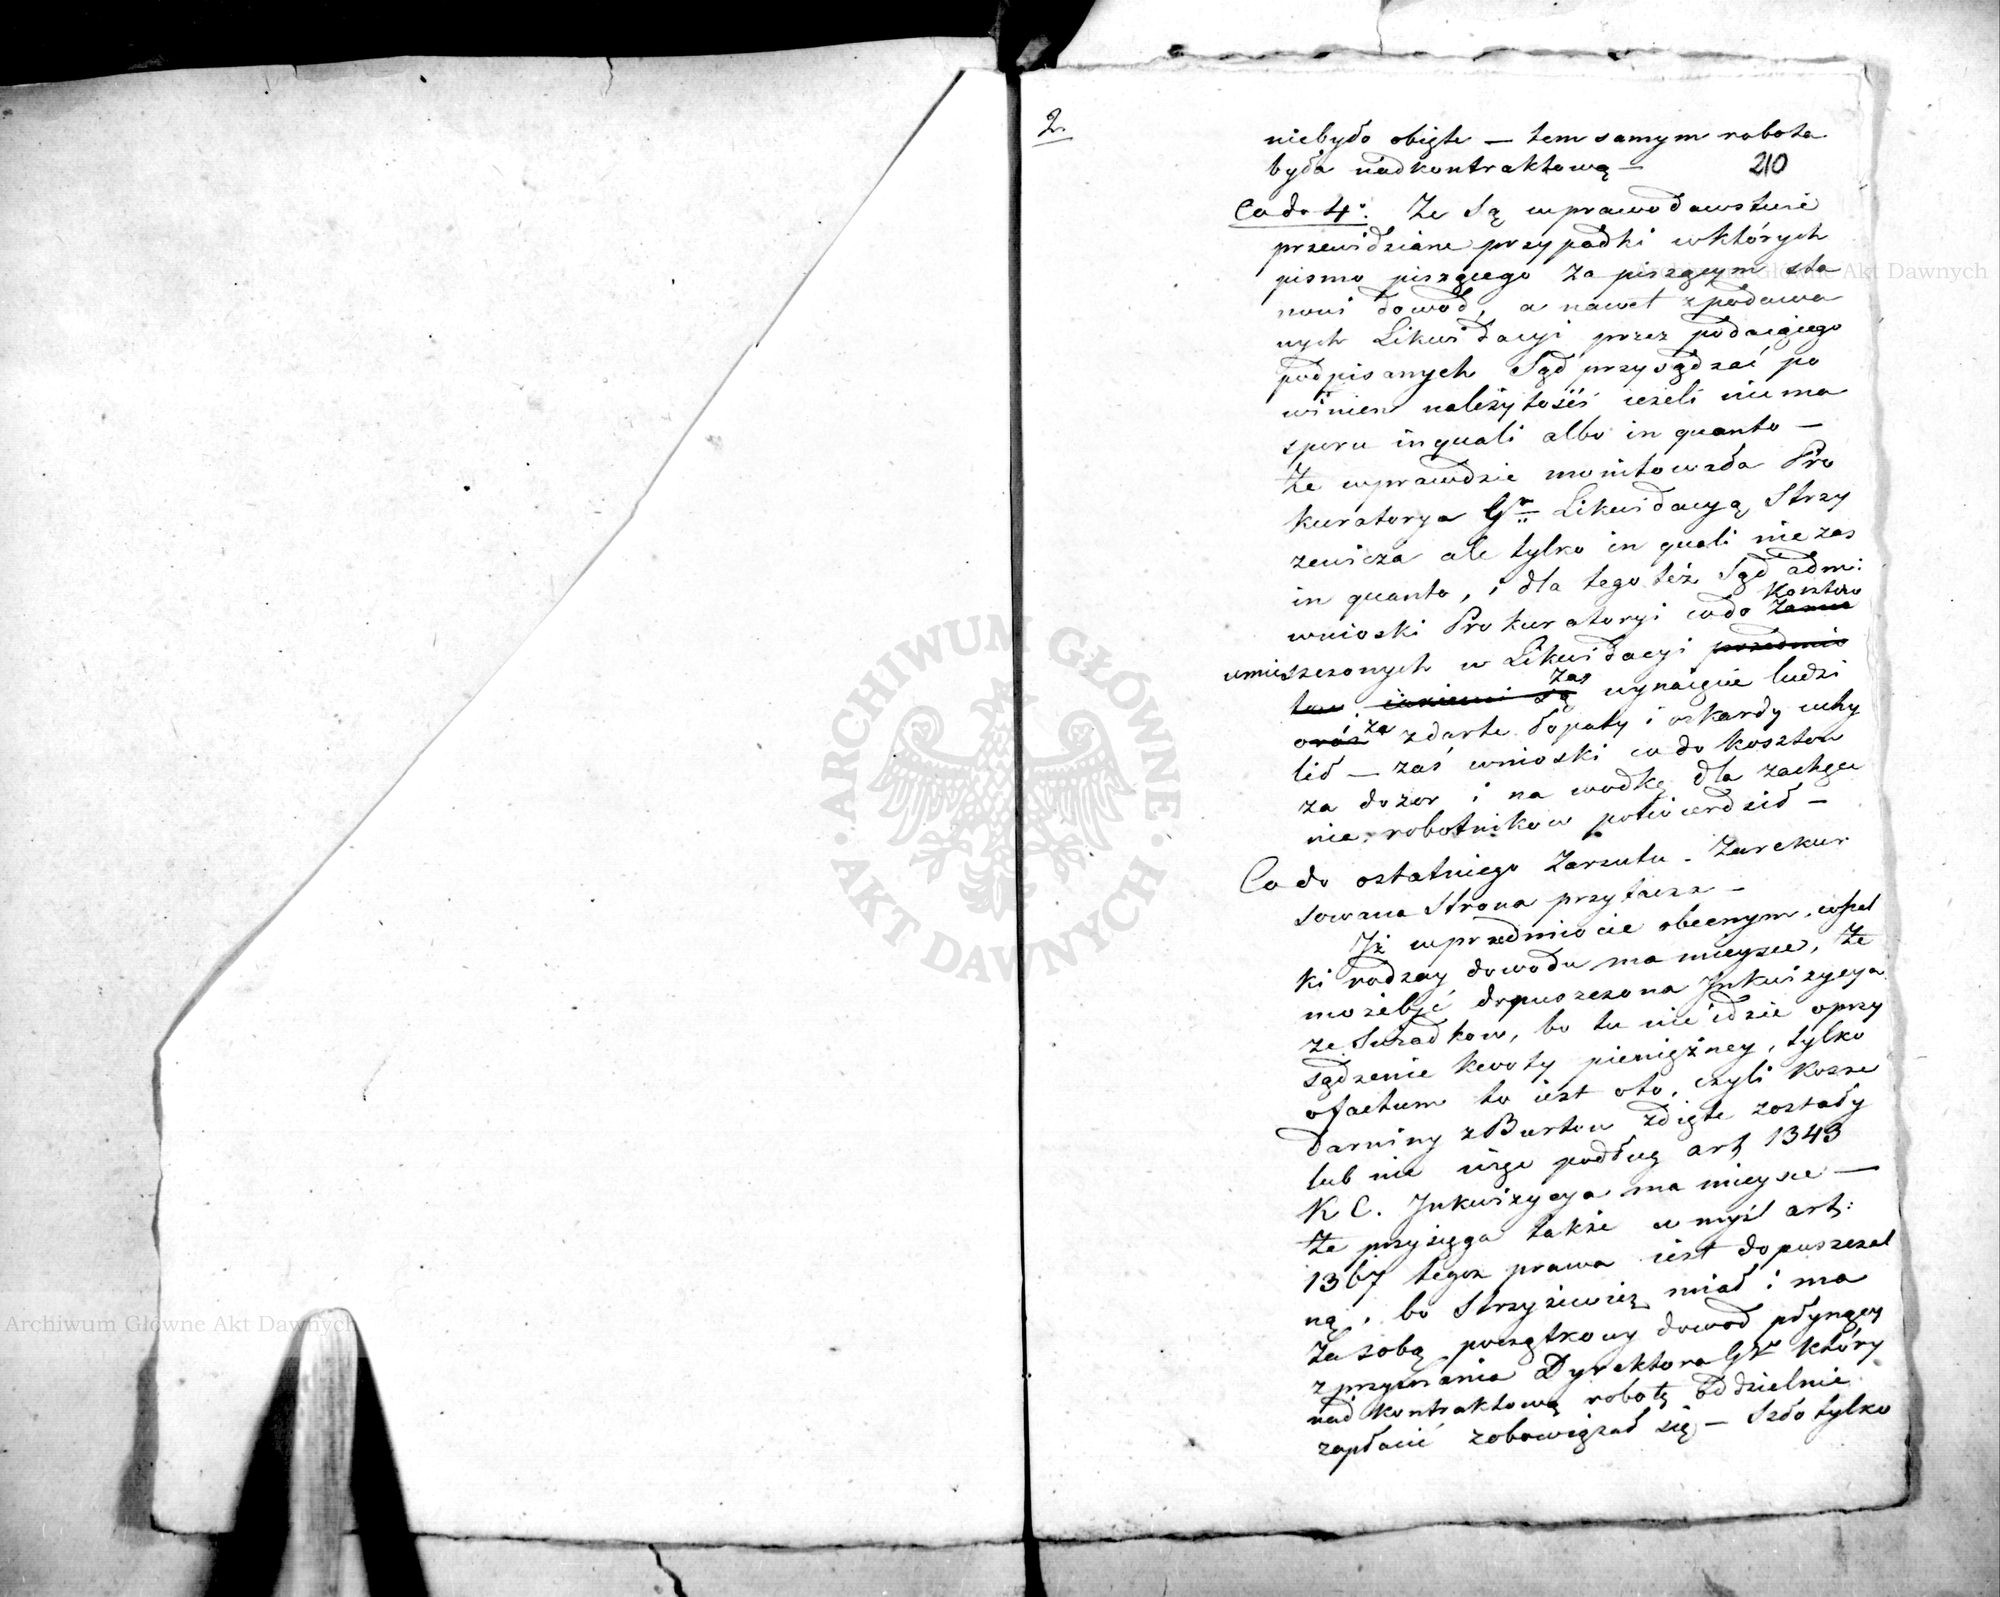 2.
niebyło obięte — tem samym robota
była nadkontraktową —
210
Co do 4º. Że są w prawodawstwie
przewidziane przypadki w których
pismo piszącego za piszącym sta
nowi dowod, a nawet z podawa
nych Likwidacyi przez podaiącego
podpisanych Sąd przysądzać po
winien należytość ieżeli niema
sporu in quali albo in quanto —
Że wprawdzie monitowała Pro
kuratorya Gr. Likwidacyą Strzy
żewicza ale tylko in quali nie zas
in quanto, i dla tego też Sąd adm:
wnioski Prokuratoryi co do kosztow
umieszczonych w Likwidacyi
za wynaięcie ludzi
i za zdarte łopaty i oskardy uchy
lił — zaś wnioski co do kosztow
za dozor i na wodkę dla zachęce
nia robotnikow potwierdził —
Co do ostatniego Zarzutu. Zarekur
sowana Strona przytacza —
Iż w przedmiocie obecnym wszel
ki rodzay dowodu ma mieysce, Że
może być dopuszczona Inkwizycya
ze Swiadkow, bo tu nie idzie o przy
sądzenie kwoty pieniężney, tylko
o factum to iest oto, czyli kosze
Darniny z Burtow zdięte zostały
lub nie więc podług art 1343
K C. Inkwizycya ma mieysce —
Że przysięga także w myśl art:
1367 tegoz prawa iest dopuszczal
ną, bo Strzyżewicz miał i ma
Za sobą początkowy dowod płynący
z przyznania Dyrektora Gr który
nad kontraktową robotę oddzielnie
zapłacić zobowiązał się — Szło tylko
Archiwum Główne Akt Dawnych
ARCHIWUM GŁÓWNE
AKT DAWNYCH
Archiwum Główne Akt Dawnych